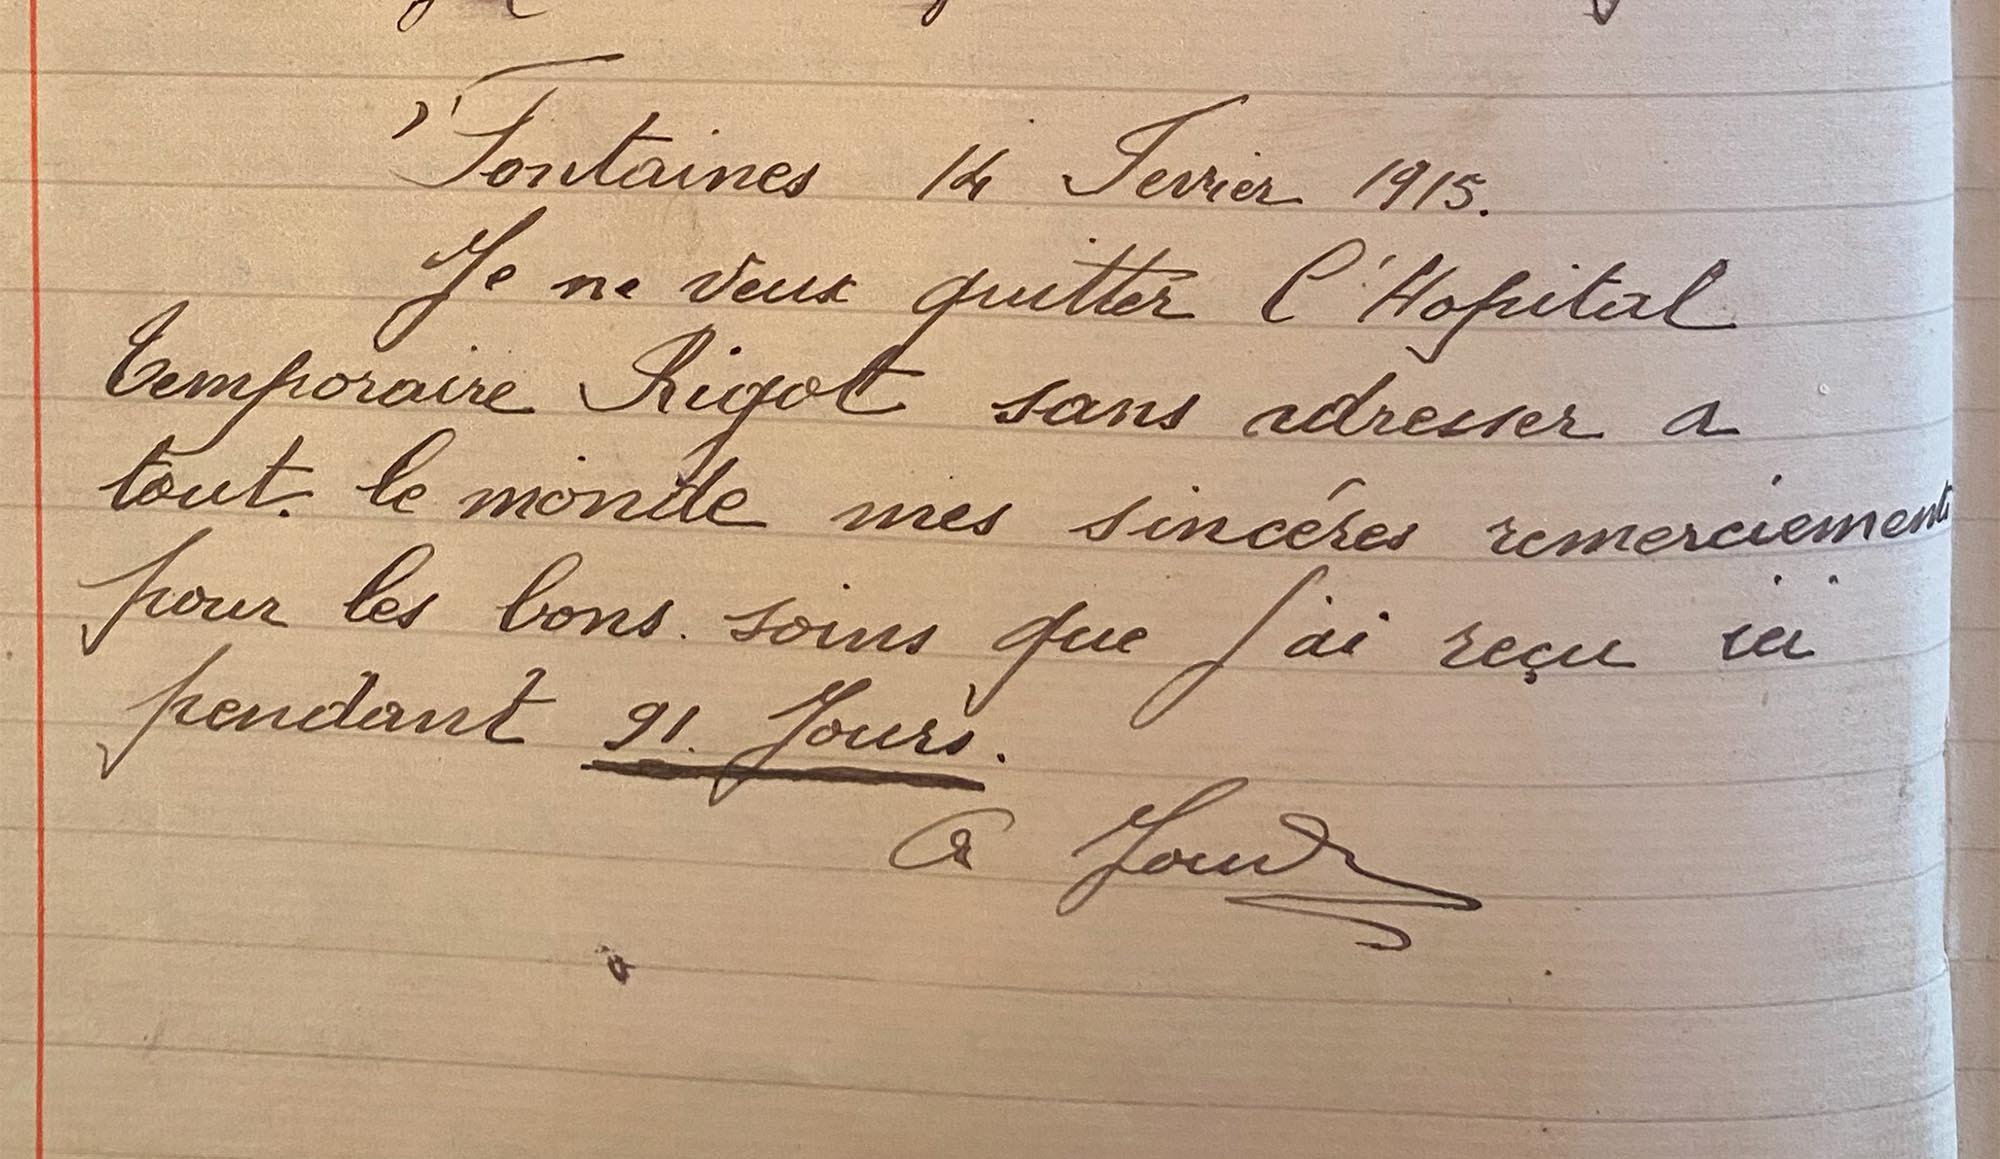 Fontaines 14 Fevrier 1915.
Je ne veux quitter l'Hopital
temporaire Rigot sans adresser a
tout. le monde mes sincéres remerciements
pour les bons. soins que j'ai reçu ici
pendant 91. Jours.
A